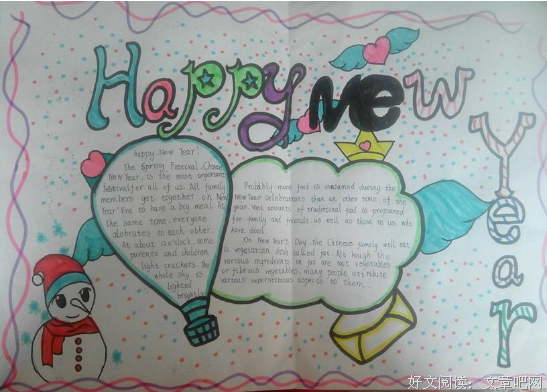 Happy New
Year
Happy New Year!
The Spring Festival, Chinese
New Year, is the most important
festival for all of us. All family
members get together on New
Year Eve to have a big meal. At
the same time, everyone
celebrates to each other.
At about 12 o'clock, some
parents and children
light crackers. The
whole sky is
lighted
brightly
Probably more food is consumed during the
New Year celebrations than any other time of the
year. Vast amounts of traditional food is prepared
for family and friends, as well as those to us who
have died.
On New Year's Day, the Chinese family will eat
a vegetarian dish called jai. Although the
various ingredients in jai are root vegetables
or fibrous vegetables, many people attribute
various superstitious aspects to them.
好文阅读：文章吧网